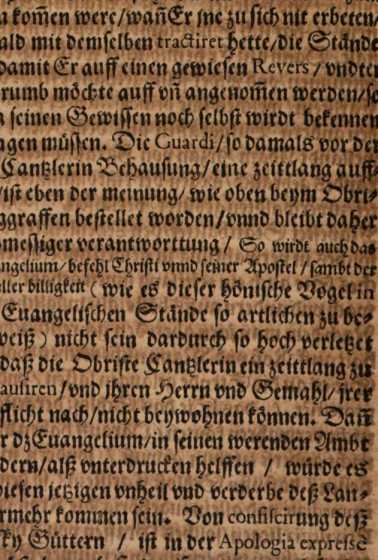 kom̃en were/wañ Er jne zu sich nit erbeten/
ald mit demselben tractiret hette/die Stände
damit Er auff einen gewiesen Revers/vndter
rumb möchte auff vñ angenom̃en werden/so
seinen Gewissen noch selbst wirdt bekennen
agen müssen. Die Guardi/so damals vor der
Cantzlerin Behausung/eine zeittlang auff-
/ist eben der meinung/wie oben beym Obri-
ggraffen bestellet worden/vnnd bleibt daher
messiger verantworttung/ So wirdt auch das
ngelium/befehl Christi vnnd seiner Apostel/sambt der
aller billigkeit (wie es dieser hönische Vogel in
Euangelischen Stände so artlichen zu be-
weiß) nicht sein dardurch so hoch verletzet
daß die Obriste Cantzlerin ein zeittlang zu
ausiren/vnd jhren Herrn vnd Gemahl/jrer
flicht nach/nicht beywohnen können. Dañ
r dz Euangelium/in seinen werenden Ambt
dern/alß vnterdrucken helffen / würde es
iesen jetzigen vnheil vnd verderbe deß Lan-
rmehr kommen sein. Von confiscirung deß
ky Güttern / ist in der Apologia expresse